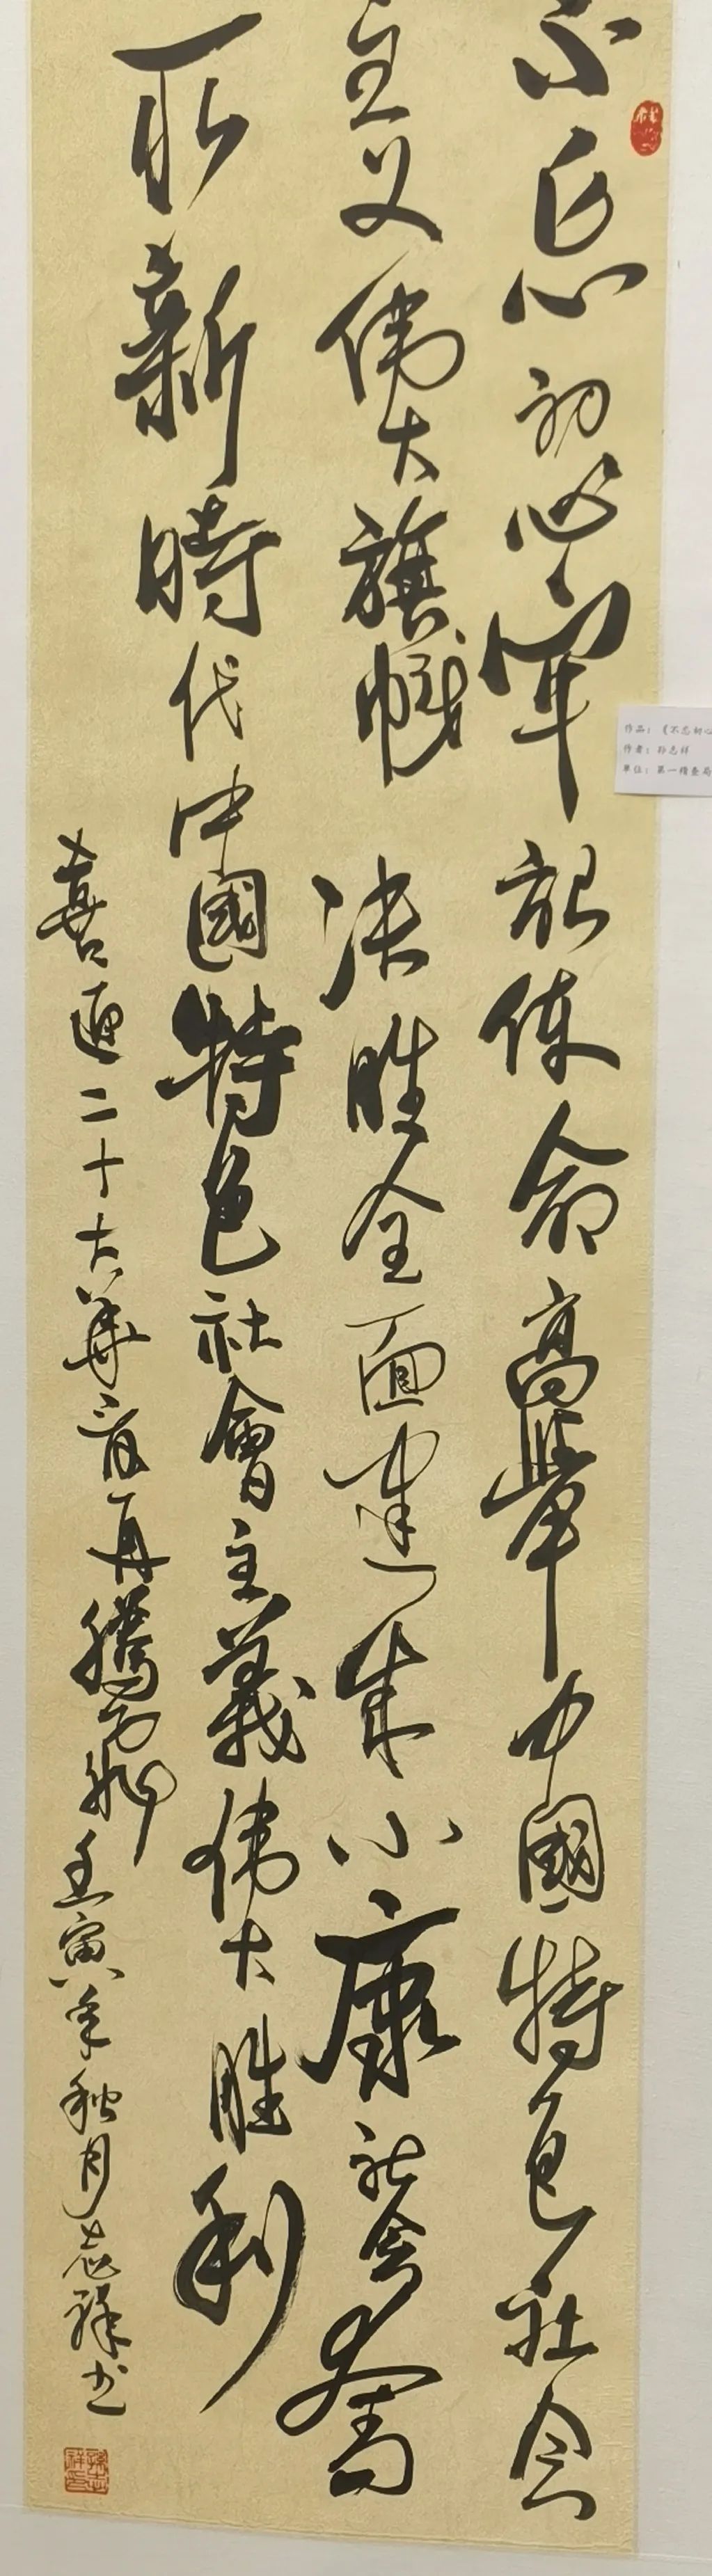 不忘初心牢記使命高舉中國特色社会
主义偉大旗幟决胜全面建成小康社会奪
取新時代中國特色社會主義偉大胜利
喜迎二十大華夏再騰飛壬寅年秋月志祥书
作品：《不忘初心
作者：孙志祥
单位：第一稽查局